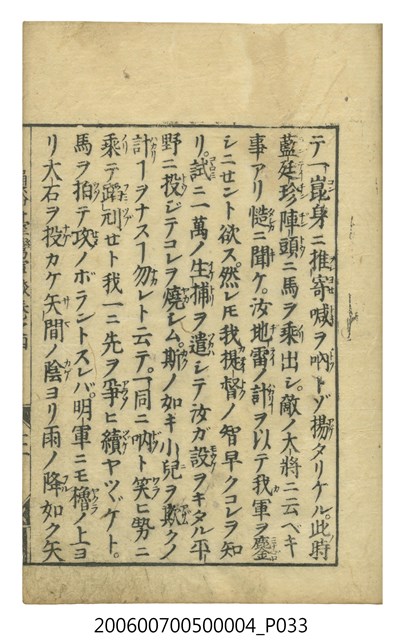 テ一崑身ニ推寄喊ヲ吶トゾ揚タリケル。此時
藍廷珍陣頭ニ馬ヲ乗出シ。敵ノ大將ニ云ベキ
事アリ慥ニ聞ケ。汝地雷ノ計ヲ以テ我軍ヲ鏖
シニセント欲ス。然レモ我提督ノ智早クコレヲ知
リ。試ニ一萬ノ生捕ヲ遣シテ汝ガ設ヲキタル平
野ニ投ジテコレヲ燒シム。斯ノ如キ小兒ヲ欺クノ
計ヲナスヿ勿レト云テ。一同ニ吶ト笑ヒ勢ニ
乗テ踴刓セト我一ニ先ヲ爭ヒ續ヤツヾケト。
馬ヲ拍テ攻ノボラントスレバ。明軍ニモ櫓ノ上ヨ
リ大石ヲ投カケ矢間ノ陰ヨリ雨ノ降如ク矢
200600700500004_P033